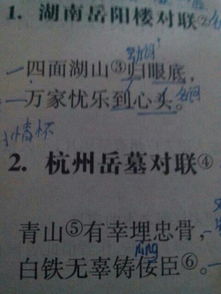 1. 湖南岳阳楼对联②
四面湖山③归眼底,
万家忧乐到心头。
2. 杭州岳墓对联④
青山⑤有幸埋忠骨,
白铁无辜铸佞臣⑥。